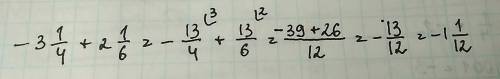 -3 1/4 + 2 1/6 = - 13/4 ⌊3 + 13/6 ⌊2 = -39+26/12 = - 13/12 = -1 1/12